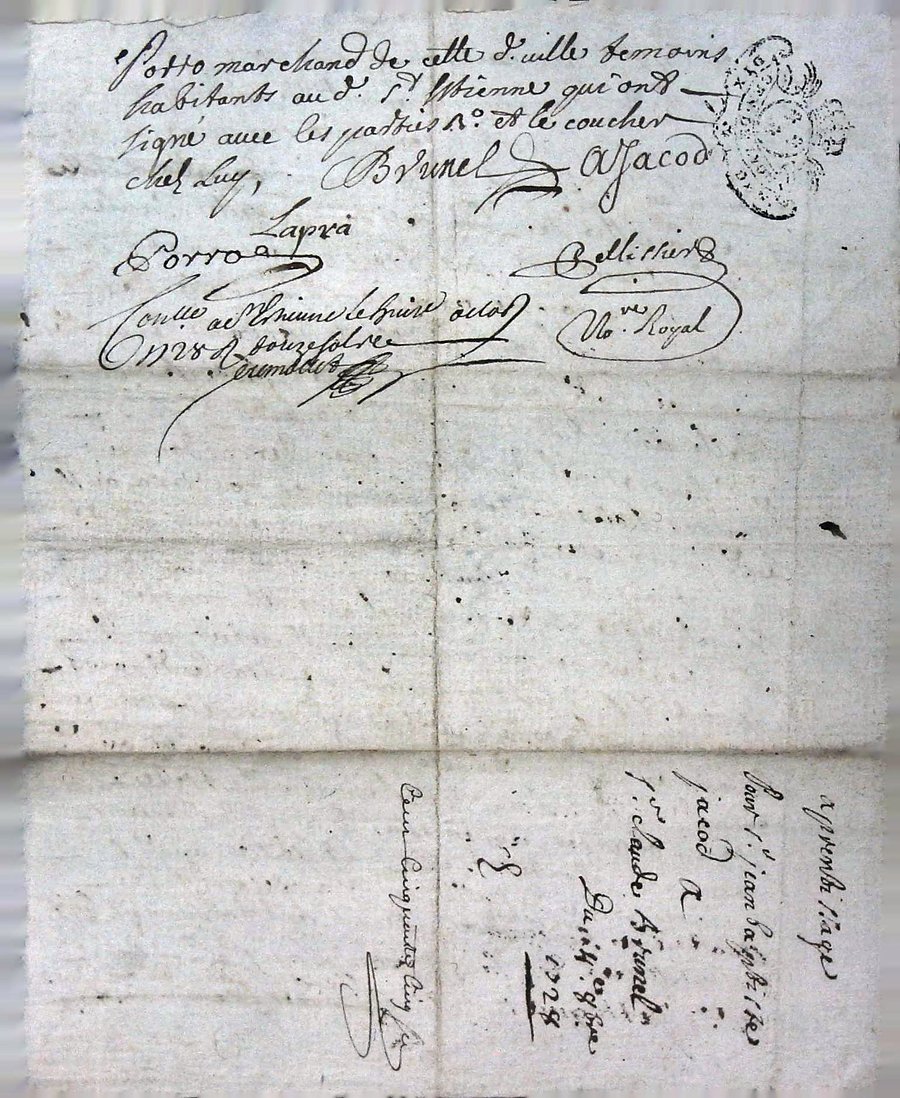 Porro marchand de cette d. ville temoins
habitants au d. St. Etienne qui ont
signé avec les parties Ro. et le coucher
chez Luy,
Brunel
A Jacod
Lapra
Porro
Pellissier
No.re Royal
Con.lle a St Etienne le octo
1728 R douze sols
aprentissage
Pour Sr. jean baptiste
jacod A
Sr. claude Brunel
Du 8bre
1728